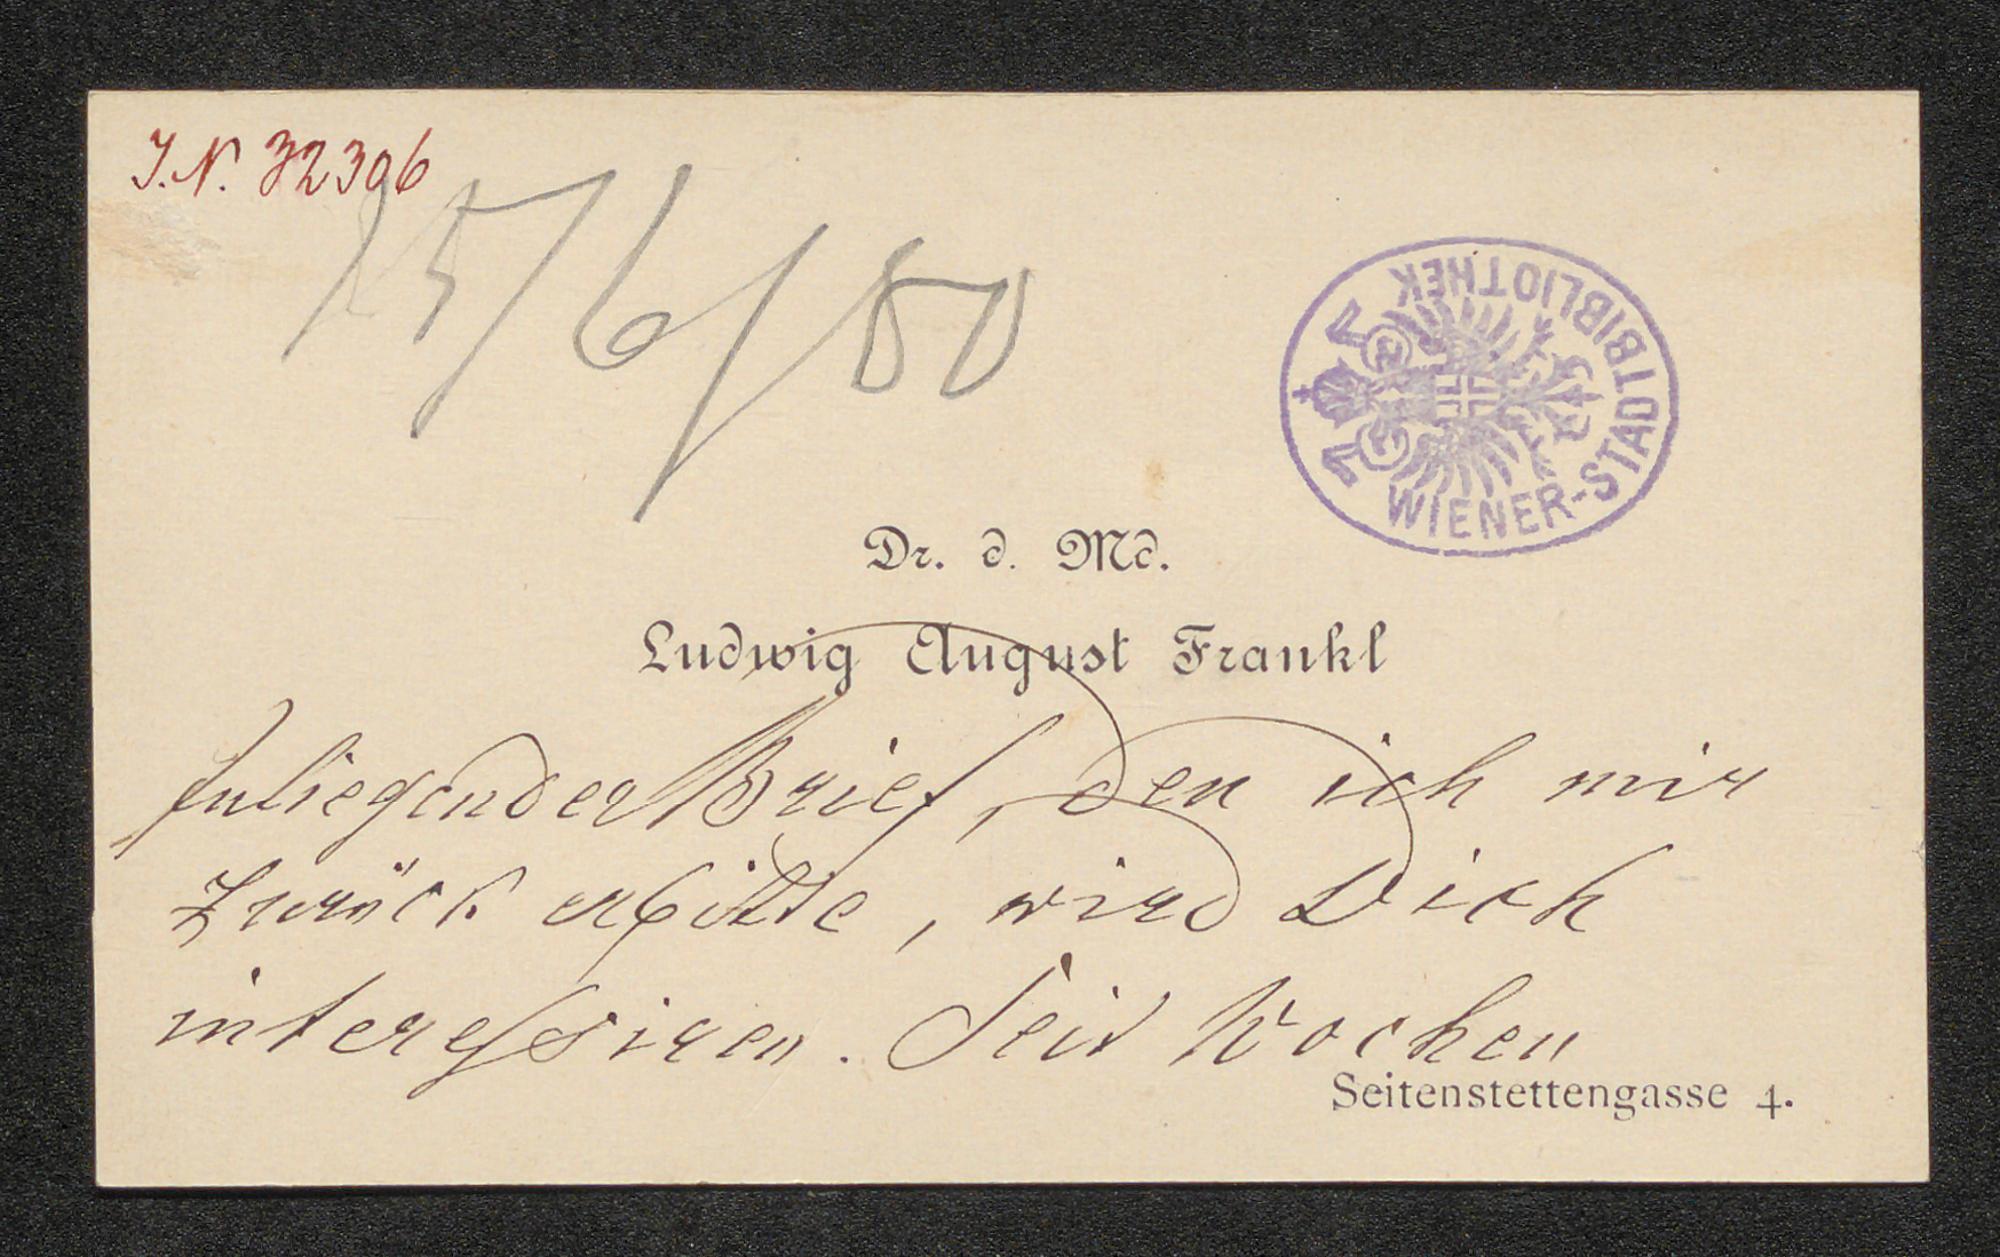 J.N. 32306
15/6/80
WIENER-STADTBIBLIOTHEK
Dr. d. Md.
Ludwig August Frankl
Inliegender Brief, den ich mir
zurück erbitte, wird Dich
interessiren. Seit Wochen
Seitenstettengasse 4.